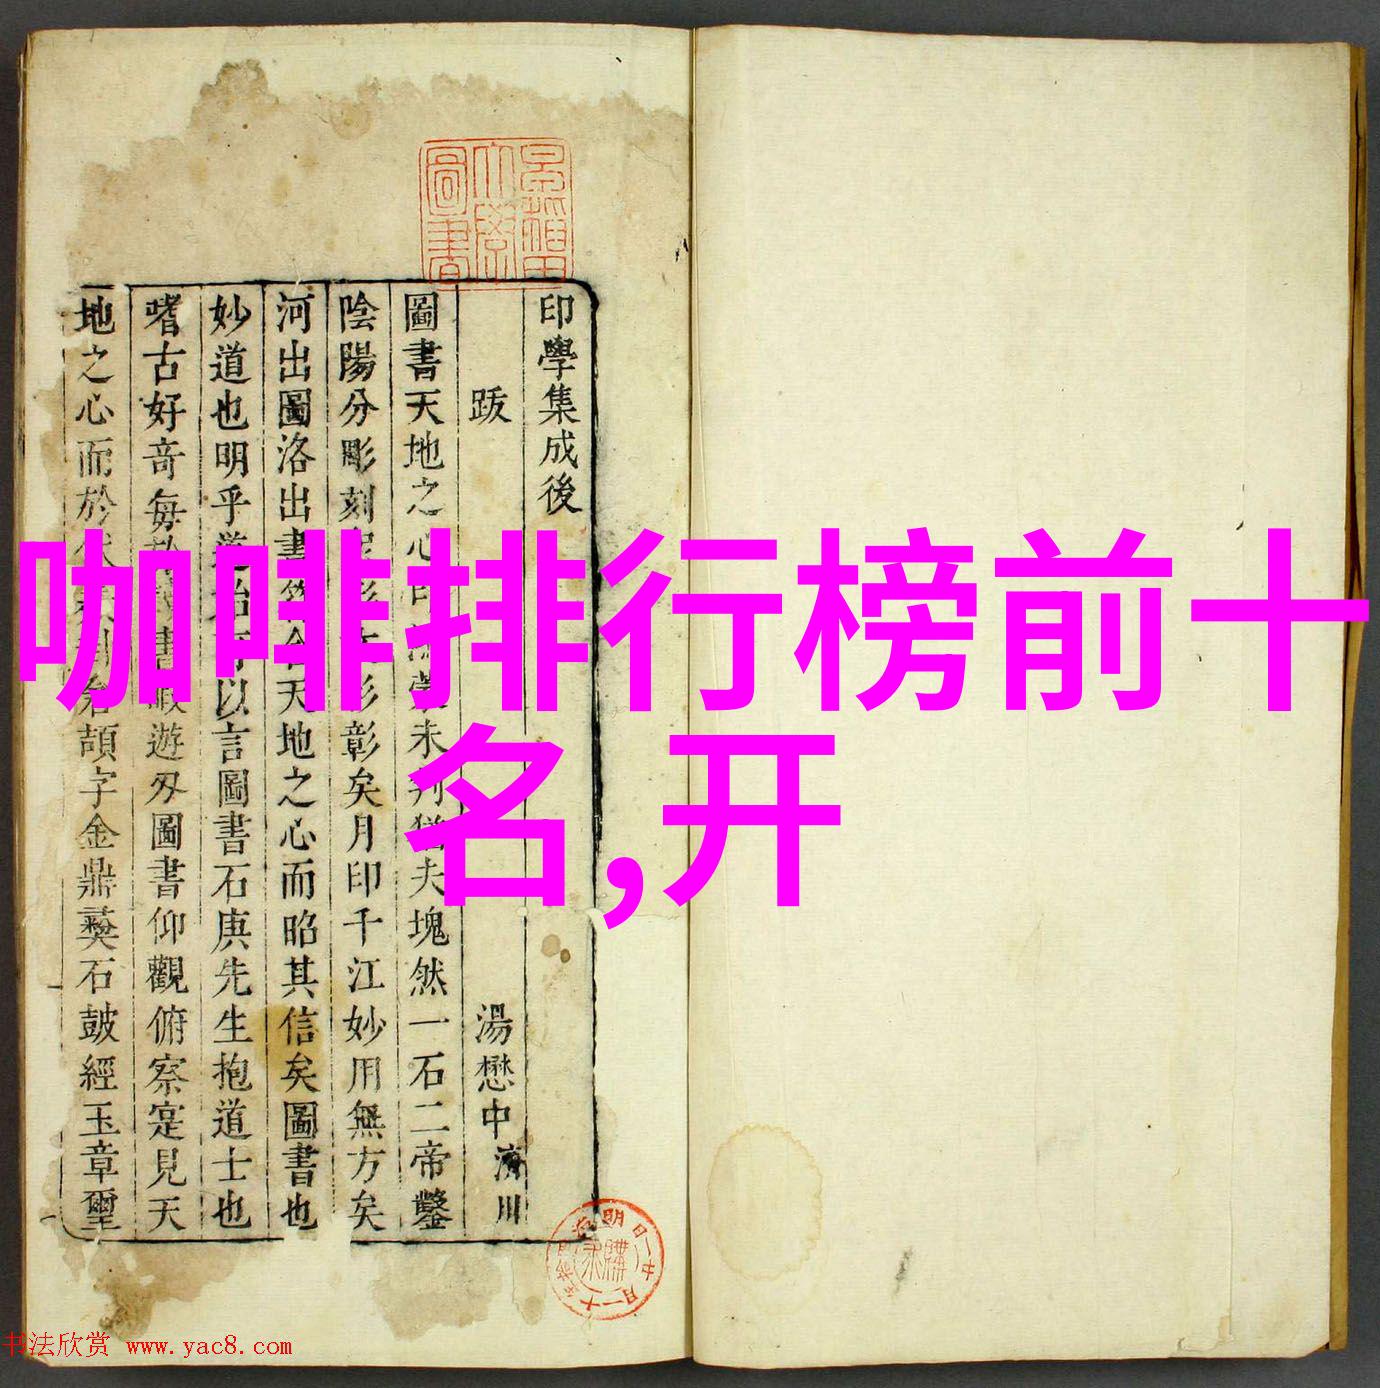 咖啡排行榜前十
名,开
印學集成後
跋
湯懋中濟川
圖書天地之心
未判猶夫塊然一石二帝鑿
陰陽分彫刻
彰矣月印千江妙用無方矣
河出圖洛出書
天地之心而昭其信矣圖書也
妙道也明乎
以言圖書石庚先生抱道士也
嗜古好奇每
遊刄圖書仰觀俯察寔見天
地之心而於
頡字金鼎彝石鼓經玉章璽
書法欣赏 www.yac8.com